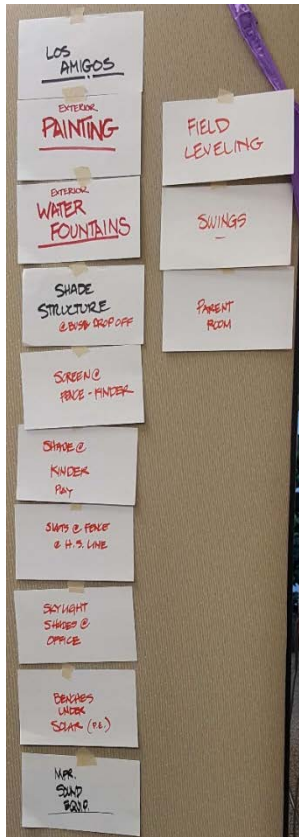 LOS
AMIGOS
EXTERIOR
PAINTING
EXTERIOR
WATER
FOUNTAINS
SHADE
STRUCTURE
@ BUS DROP OFF
SCREEN @
FENCE - KINDER
SHADE @
KINDER
PAY
SLATS @ FENCE
@ H.S. LINE
SKYLIGHT
SHADES @
OFFICE
BENCHES
UNDER
SOLAR (P.E.)
MPR.
SOUND
EQUIP.
FIELD
LEVELING
SWINGS
PARENT
ROOM